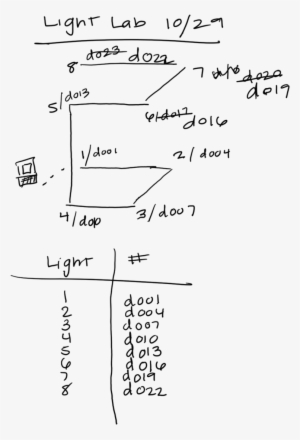 Light Lab 10/29
8 d023 d022
7 d020
d019
5/d013
6/d017
d016
1/d001
2/d004
4/d010
3/d007
Light #
1 d001
2 d004
3 d007
4 d010
5 d013
6 d016
7 d019
8 d022